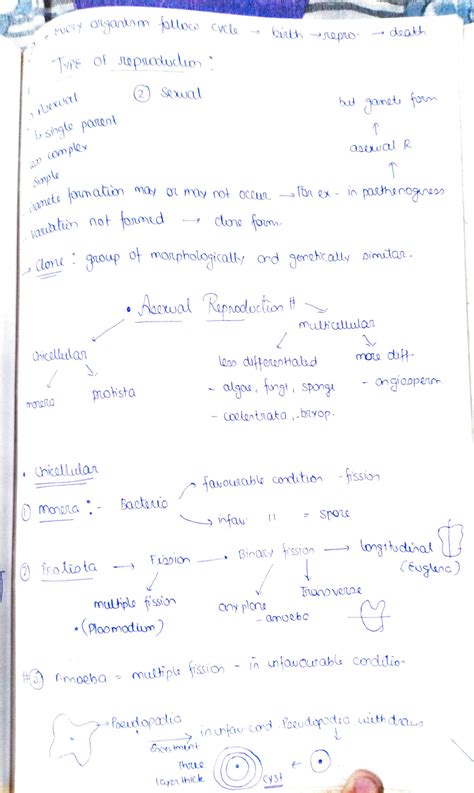 Every organism follow cycle → birth → repro. → death
Type of reproduction :
Asexual ② Sexual but gamete form
↳ single parent ↑
less complex asexual R
simple ↑
gamete formation may or may not occur → for ex - in parthenogeness
variation not formed → clone form.
→ Clone : group of morphologically and genetically similar.
• Asexual Reproduction #
multicellular
unicellular less differentiated more diff.
monera protista - algae, fungi, sponge - angiosperm
- coelentrata, bryop.
• Unicellular
favourable condition - fission
① Monera :- Bacteria
infav " = spore
② Protista → Fission → Binary fission → longitudinal
(Euglena)
multiple fission any plane Transverse
• (Plasmodium) - amoeba
#③ Amoeba = multiple fission - in unfavourable conditio-
→ Pseudopodia → in unfav cond Pseudopodia withdraws
Encystment
Three
layer thick cyst ←